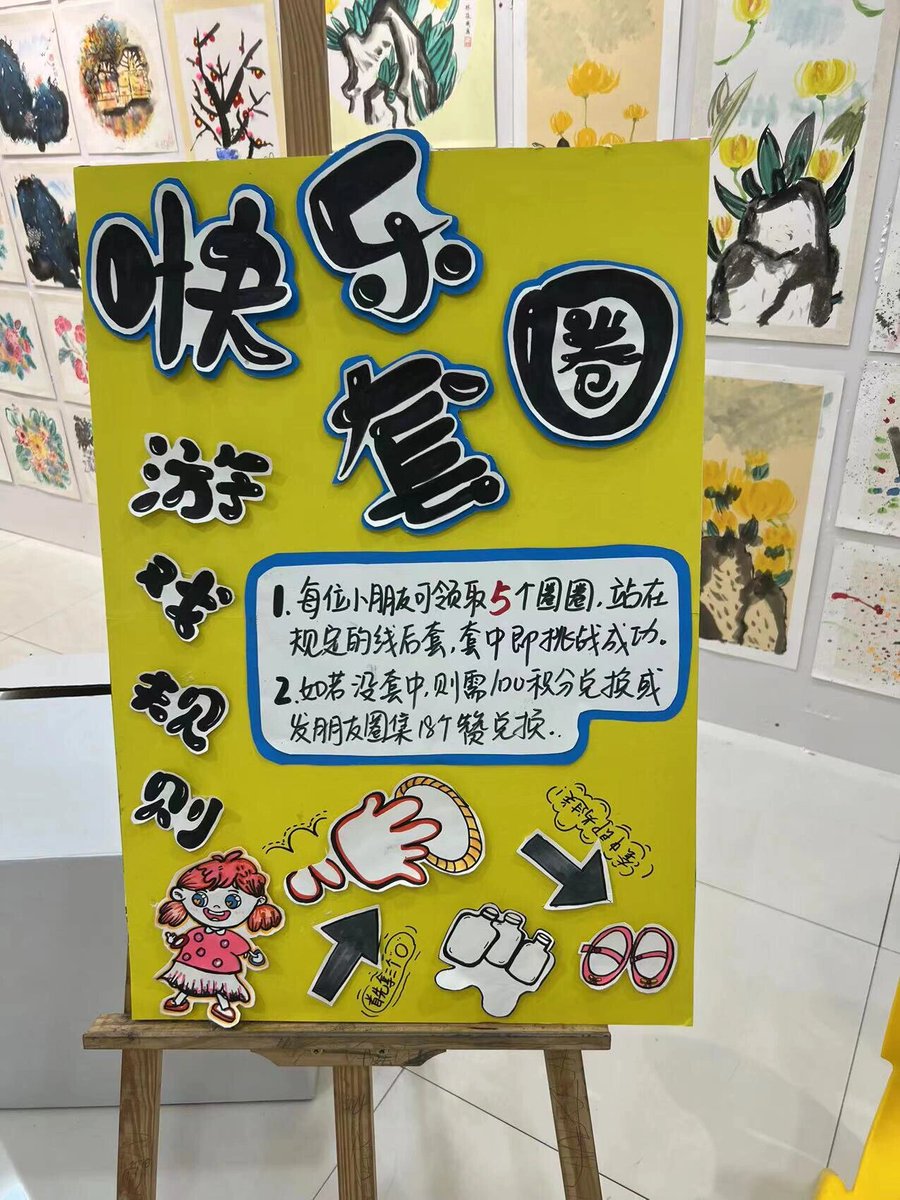 快乐
套圈
游戏规则
1.每位小朋友可领取5个圈圈,站在
规定的线后套,套中即挑战成功。
2.如若没套中,则需100积分兑换或
发朋友圈集18个赞兑换..
套中即为过关!
首先拿三个〇